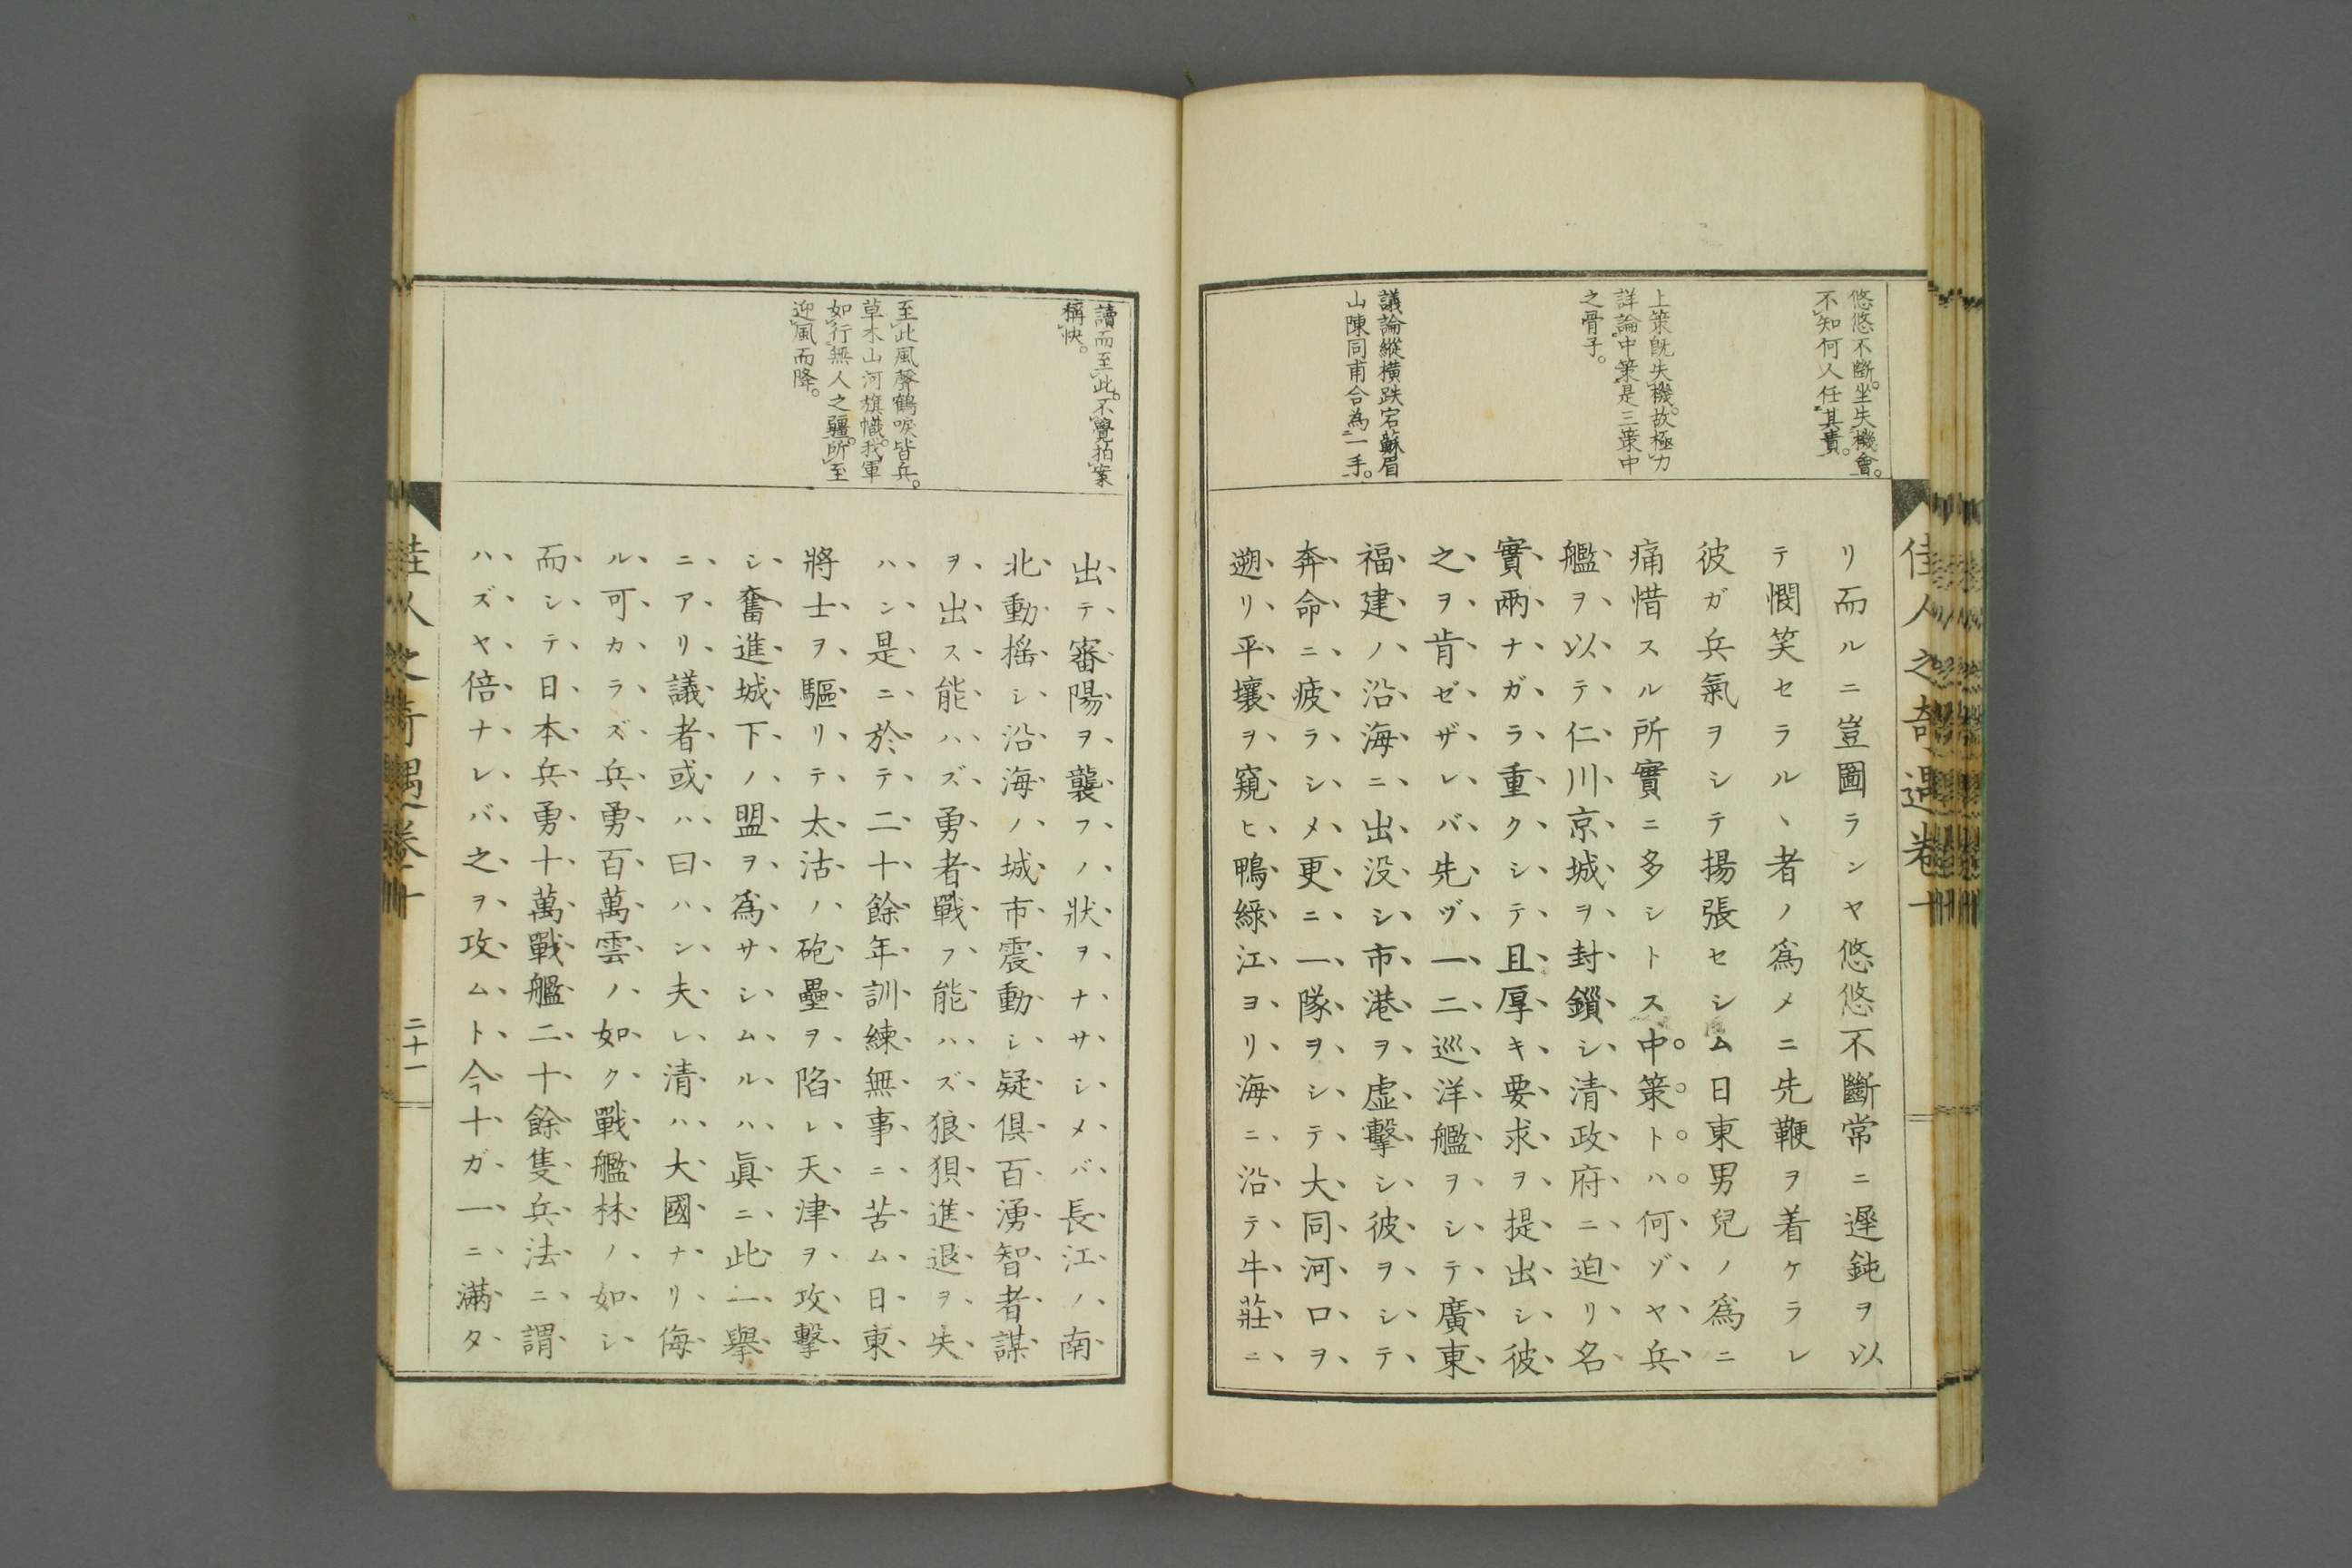 悠悠不斷。坐失機會。
不知何人任其責。
上策既失機。故極力
詳論中策。是三策中
之骨子。
議論縱橫跌宕。蘇眉
山陳同甫合為一手。
佳人之奇遇卷十
リ而ルニ豈圖ランヤ悠悠不斷常ニ遲鈍ヲ以
テ憫笑セラルヽ者ノ爲メニ先鞭ヲ着ケラレ
彼ガ兵氣ヲシテ揚張セシム日東男兒ノ爲ニ
痛惜スル所實ニ多シトス中策トハ何ゾヤ兵
艦ヲ以テ仁川京城ヲ封鎖シ清政府ニ迫リ名
實兩ナガラ重クシテ且厚キ要求ヲ提出シ彼
之ヲ肯ゼザレバ先ヅ一二巡洋艦ヲシテ廣東
福建ノ沿海ニ出没シ市港ヲ虛擊シ彼ヲシテ
奔命ニ疲ラシメ更ニ一隊ヲシテ大同河口ヲ
遡リ平壤ヲ窺ヒ鴨綠江ヨリ海ニ沿テ牛莊ニ
讀而至此。不覺拍案
稱快。
至此風聲鶴唳皆兵。
草木山河旗幟。我軍
如行無人之疆。所至
迎風而降。
出テ審陽ヲ襲フノ狀ヲナサシメバ長江ノ南
北動搖シ沿海ノ城市震動シ疑倶百湧智者謀
ヲ出ス能ハズ勇者戰フ能ハズ狼狽進退ヲ失
ハン是ニ於テ二十餘年訓練無事ニ苦ム日東
將士ヲ驅リテ太沽ノ砲壘ヲ陷レ天津ヲ攻擊
シ奮進城下ノ盟ヲ爲サシムルハ眞ニ此一擧
ニアリ議者或ハ曰ハン夫レ清ハ大國ナリ侮
ル可カラズ兵勇百萬雲ノ如ク戰艦林ノ如シ
而シテ日本兵勇十萬戰艦二十餘隻兵法ニ謂
ハズヤ倍ナレバ之ヲ攻ムト今十ガ一ニ滿タ
佳人之奇遇卷十
二十一